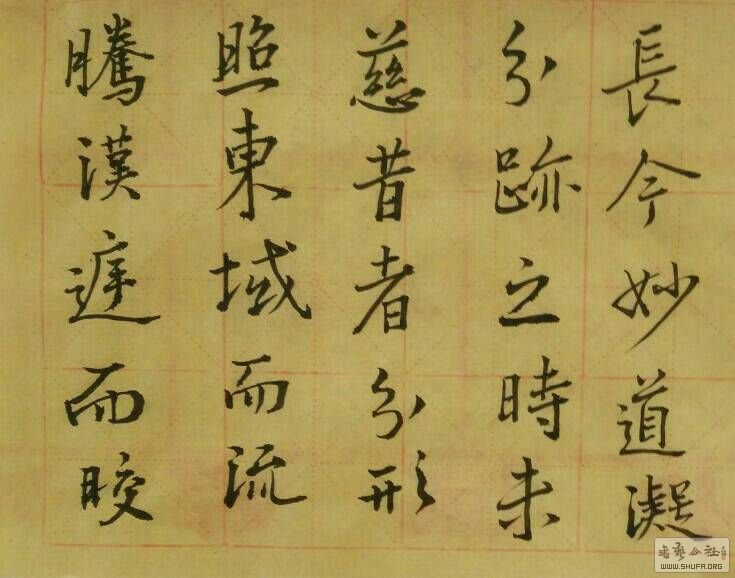 騰漢庭而晈
照東域而流
慈昔者分形
分跡之時未
長今妙道凝
書藝公社
WWW.SHUFA.ORG